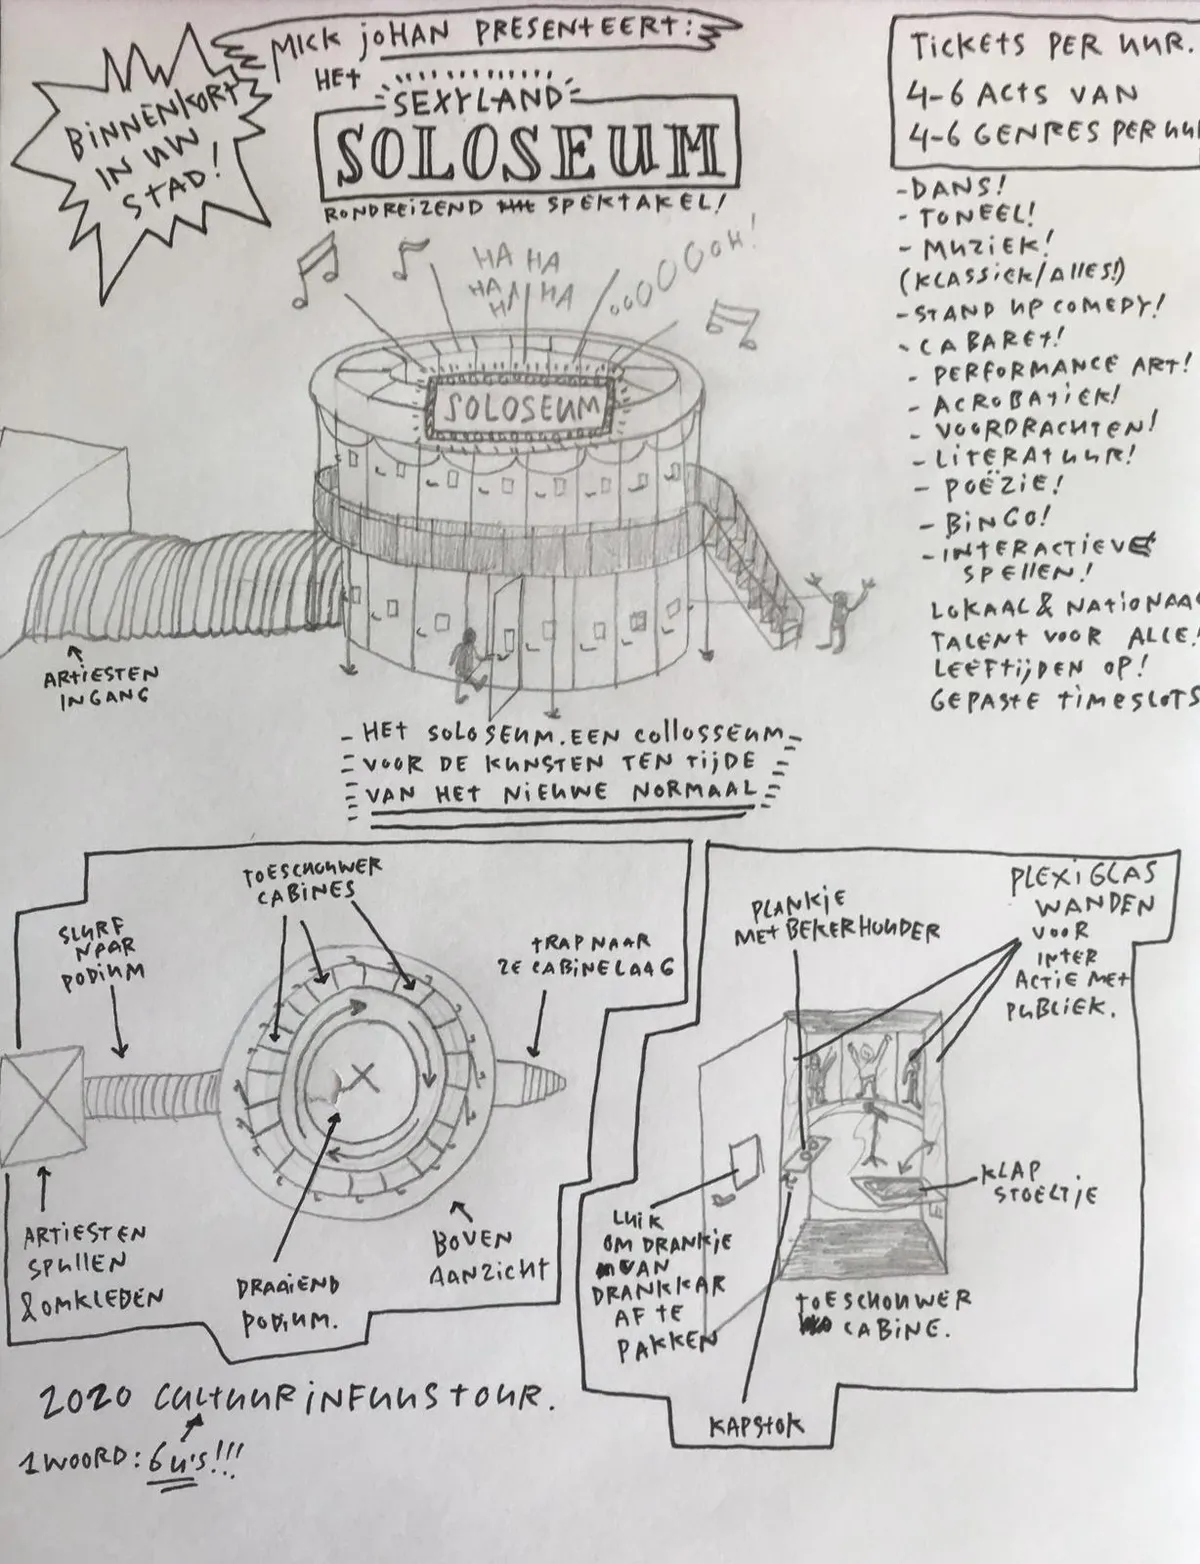 MICK JOHAN PRESENTEERT:
HET
SEXYLAND
SOLOSEUM
RONDREIZEND SPEKTAKEL!
BINNENKORT
IN UW
STAD!
TICKETS PER UUR.
4-6 ACTS VAN
4-6 GENRES PER UUR
-DANS!
- TONEEL!
- MUZIEK!
(KLASSIEK/ALLES!)
- STAND UP COMEDY!
- CABARET!
- PERFORMANCE ART!
- ACROBATIEK!
- VOORDRACHTEN!
- LITERATUUR!
- POËZIE!
- BINGO!
- INTERACTIEVE
SPELLEN!
LOKAAL & NATIONAA
TALENT VOOR ALLE!
LEEFTIJDEN OP!
GEPASTE TIMESLOTS
HA HA
HA HA HA
OOOOOOOH!
SOLOSEUM
ARTIESTEN
INGANG
- HET SOLOSEUM. EEN COLLOSSEUM -
VOOR DE KUNSTEN TEN TIJDE
VAN HET NIEUWE NORMAAL
TOESCHOUWER
CABINES
SLURF
NAAR
PODIUM
TRAP NAAR
2E CABINELAAG
ARTIESTEN
SPULLEN
& OMKLEDEN
DRAAIEND
PODIUM.
BOVEN
AANZICHT
PLANKJE
MET BEKERHOUDER
PLEXIGLAS
WANDEN
VOOR
INTER
ACTIE MET
PUBLIEK.
KLAP
STOELTJE
LUIK
OM DRANKJE
VAN
DRANKKAR
AF TE
PAKKEN
TOESCHOUWER
CABINE.
KAPSTOK
2020 CULTUURINFUUSTOUR.
1 WOORD: 6 U'S!!!